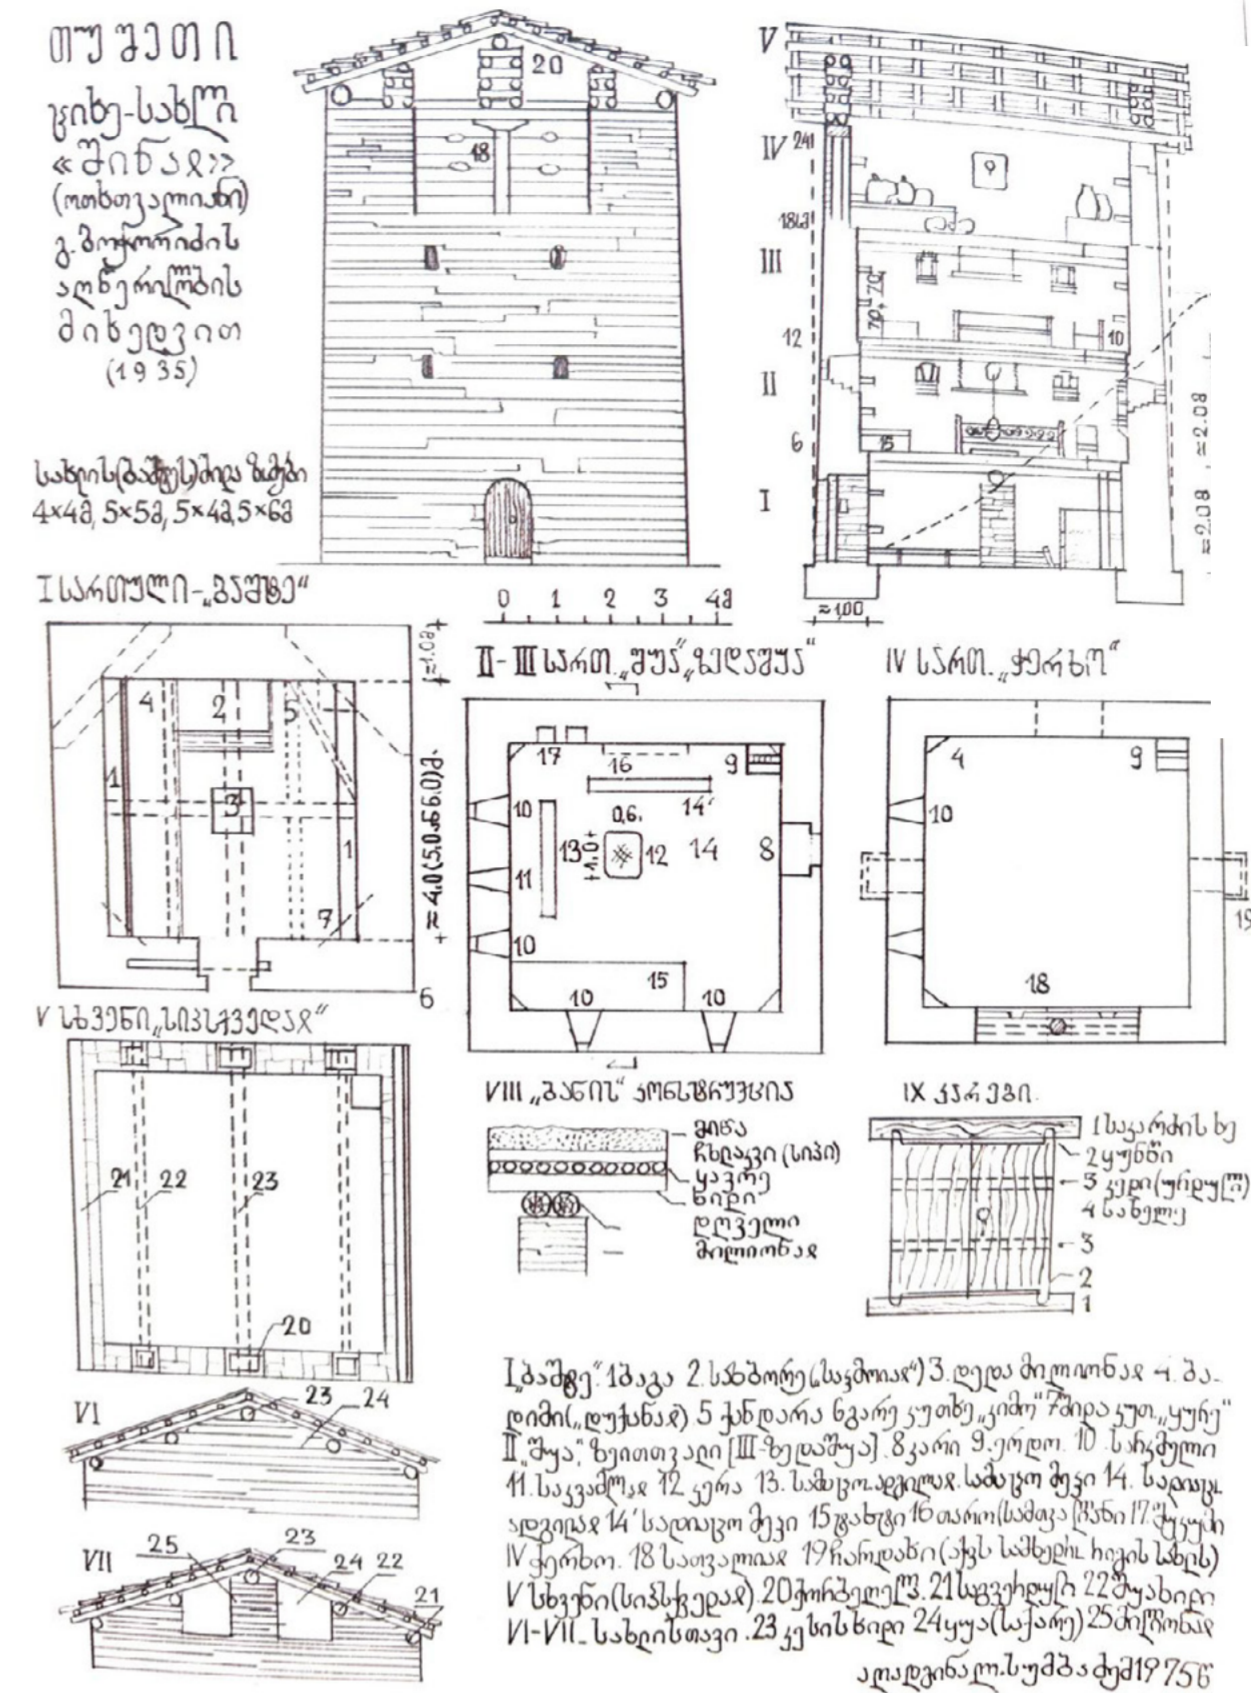 თუშეთი
ციხე-სახლი
«შინაჲ»
(ოთხთვალიანი)
გ. ბოჭორიძის
აღწერილობის
მიხედვით
(1935)
სახლის(ბაშტეს)შიდა ზომები
4×4მ, 5×5მ, 5×4მ, 5×6მ
20
18
V
IV 24
18
III
12
II
6
I
70 + 70
10
15
≈2.08 ≈2.08
≈1,00
0 1 2 3 4მ
I სართული-„ბაშტე“
4 2 5
1 3 1
7
6
≈1.0მ
≈4.0(5.0.ნ6.0)მ.
II-III სართ. „შუა“ „ზედაშუა“
17 16 9
10 14'
0,6.
13 1,0 12 14 8
11
10
15
10 10
IV სართ. „ჭერხო“
4 9
10
19
18
V სხვენი „სიპსქვედაჲ“
21 22 23
20
VIII „ბანის“ კონსტრუქცია
მიწა
ჩხლაკვი (სიპი)
ყავრე
ხიდი
დღველი
მილიონაჲ
IX კარები.
1 საკარძის ხე
2 ყუნწი
3 კედი (ურდული)
4 სახელე
3
2
1
VI 23 24
VII 25 23 24 22 21
I „ბაშტე“. 1 ბაგა 2. სახბორე („საკმოიაჲ“) 3. დედა მილიონაჲ 4. ბა-
დიმი („დუქანაჲ) 5 ქანდარა 6 გარე კუთხე „კიმო“ 7 შიდა კუთ. „ყურე“
II „შუა“, ზეითთვალი [III-ზედაშუა]. 8 კარი 9. ერდო. 10. სარკმელი
11. საკვამლაჲ 12 კერა 13. სამაცო. ადგილაჲ. სამაცო მეკი 14. სადიაცო.
ადგილაჲ 14' სადიაცო მეკი 15 ტახტი 16 თარო
IV ჭერხო. 18 სათვალიაჲ 19 ჩარდახი (აქვს სამხედრ. რიგის სახლს)
V სხვენი (სიპსქვედაჲ). 20 ჯორბელელ. 21 საგვერდული 22 შუახიდი
VI-VII. სახლისთავი. 23 კესის ხიდი 24 ყუა (საქარე) 25 მილიონაჲ
აღადგინა ლ. სუმბაძემ 1975წ